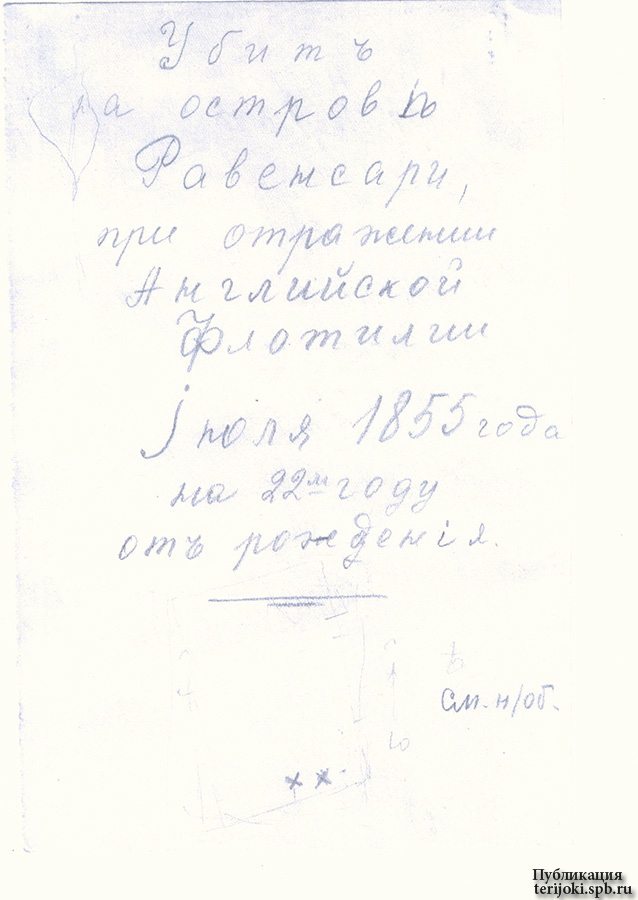 Убитъ
на островѣ
Равенсари,
при отражении
Английской
Флотилии
Iюля 1855 года
на 22м году
отъ рожденія.
См. н/об.
Публикация
terijoki.spb.ru